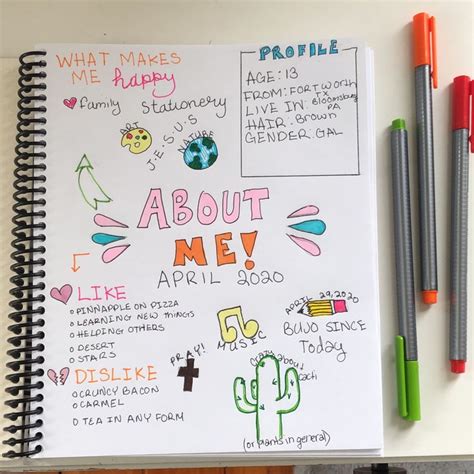 WHAT MAKES
ME happy
family Stationery
ART
J.E.S.U.S
NATURE
PROFILE
AGE: 13
FROM: FORT WORTH
TX
LIVE IN: Bloomsburg
PA
HAIR: Brown
GENDER: GAL
ABOUT
ME!
APRIL 2020
LIKE
PINNAPPLE ON PIZZA
LEARNING NEW THINGS
HELPING OTHERS
DESERT
STARS
DISLIKE
CRUNCY BACON
CARMEL
TEA IN ANY FORM
PRAY!
MUSIC
APRIL 29, 2020
BUJO SINCE
Today
Crazy about
cacti
(or plants in general)